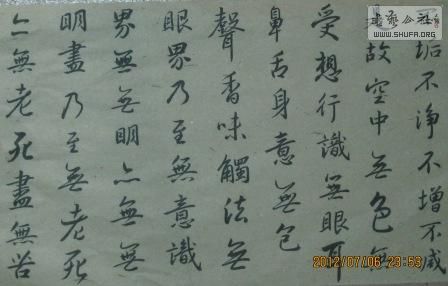 垢不净不增不减
故空中無色無
受想行識無眼耳
鼻舌身意無色
聲香味觸法無
眼界乃至無意識
界無無明亦無無
明盡乃至無老死
亦無老死盡無苦
書藝公社
WWW.SHUFA.ORG
2012/07/06 23:53